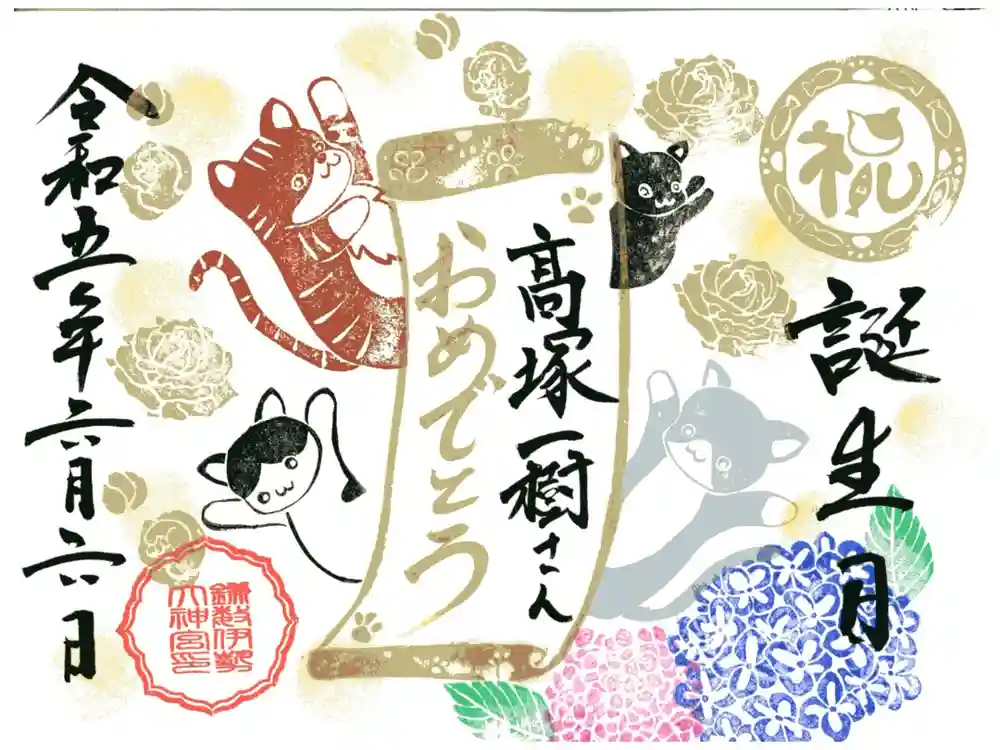 祝
誕生月
高塚一樹さん
おめでとう
令和五年六月六日
鎌数伊勢
大神宮印